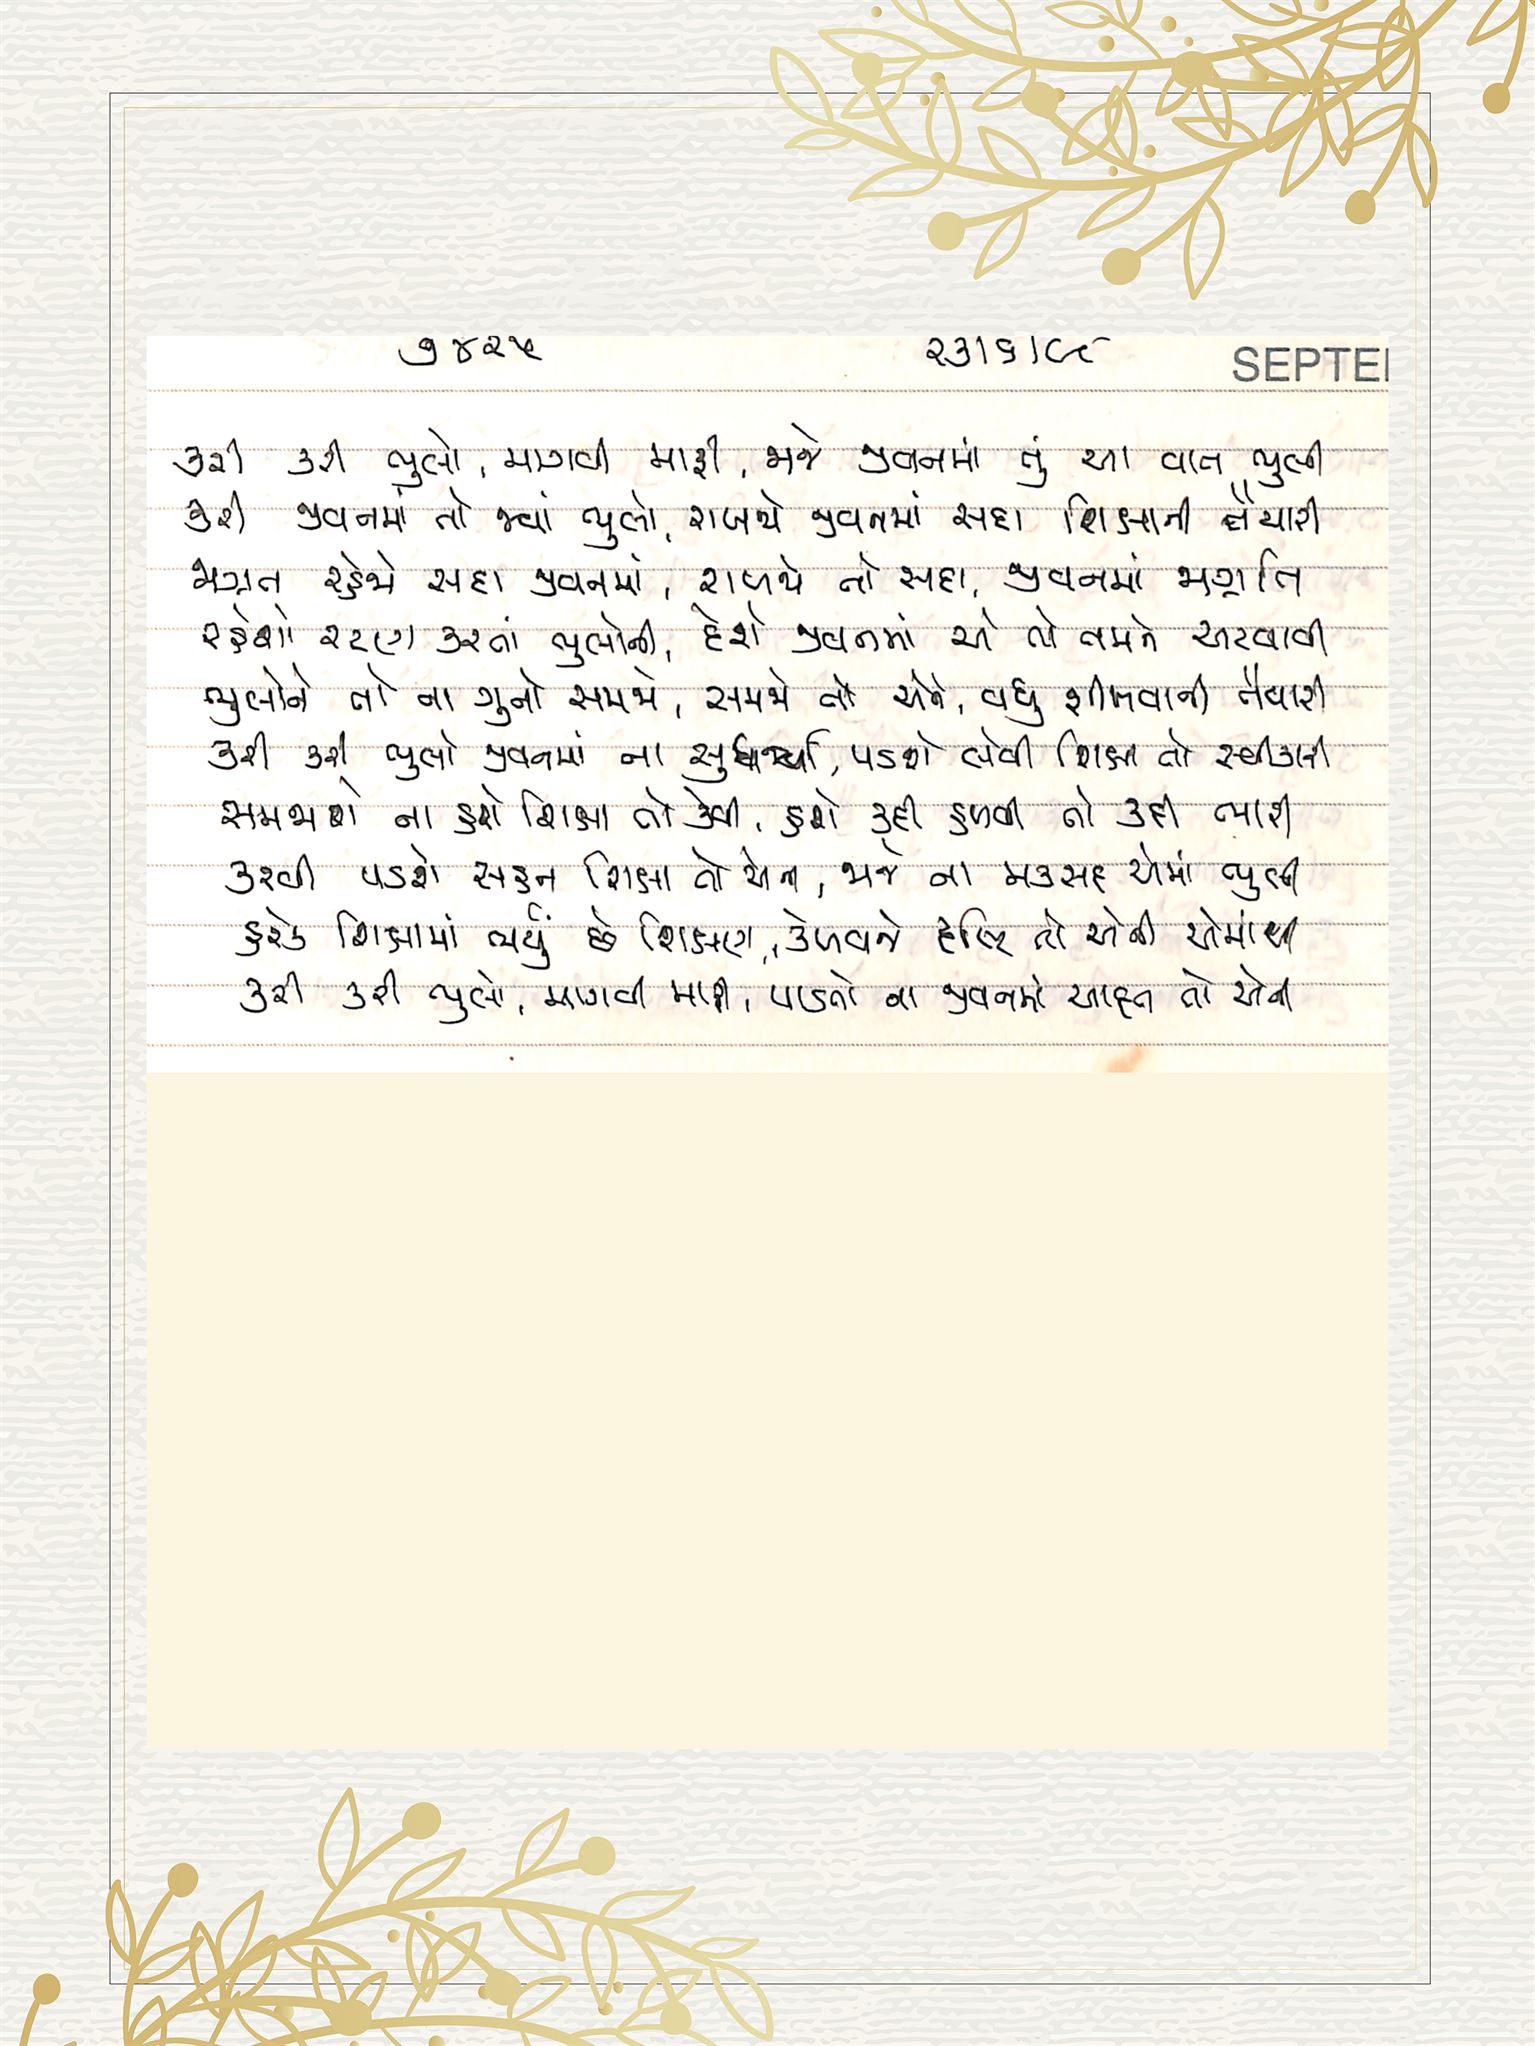 ૭૪૨૫ ૨૩।૬।૯૮ SEPTE
કરી કરી ભુલો, માગવી માફી, ભજે જીવનમાં તું આ વાત ભુલી
કરી જીવનમાં તો જ્યાં ભુલો, રાખજે જીવનમાં સદા શિક્ષાની તૈયારી
જાગ્રત રહેજે સદા જીવનમાં, રાખજે તો સદા, જીવનમાં જાગ્રતિ
રહેશો રટણ કરતાં ભુલોની, દેશે જીવનમાં એ તો તમને અટવાવી
ભુલોને તો ના ગુનો સમજે, સમજે તો એને, વધુ શીખવાની તૈયારી
કરી કરી ભુલો જીવનમાં ના સુધર્યા, પડશે લેવી શિક્ષા તો સ્વીકારી
સમજાશે ના હશે શિક્ષા તો કેવી, હશે કદી હળવી તો કદી ભારી
કરવી પડશે સહન શિક્ષા તો એને, જાજે ના મકસદ એમાં ભુલી
હરેક શિક્ષામાં ભર્યું છે શિક્ષણ, કેળવજે દૃષ્ટિ તો એવી એમાંથી
કરી કરી ભુલો, માગવી માફી, પાડતો ના જીવનમાં આદત તો એવી